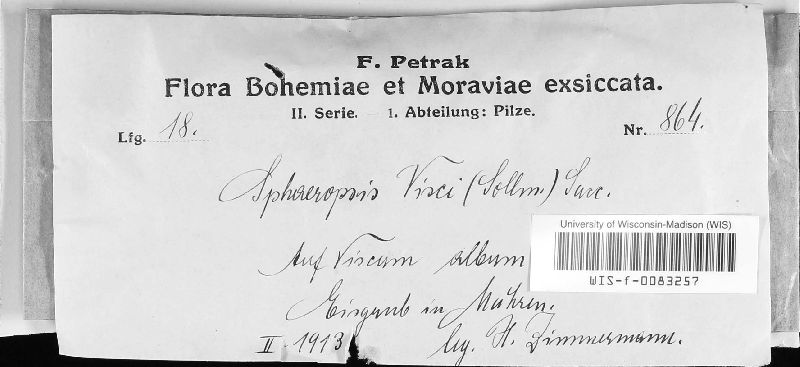 F. Petrak
Flora Bohemiae et Moraviae exsiccata.
II. Serie. — 1. Abteilung: Pilze.
Lfg. 18. Nr. 864.
Sphaeropsis Visci (Sollm.) Sacc.
Auf Viscum album
University of Wisconsin-Madison (WIS)
WIS-f-0083257
Eisgrub in Mähren.
II 1913 leg. H. Zimmermann.